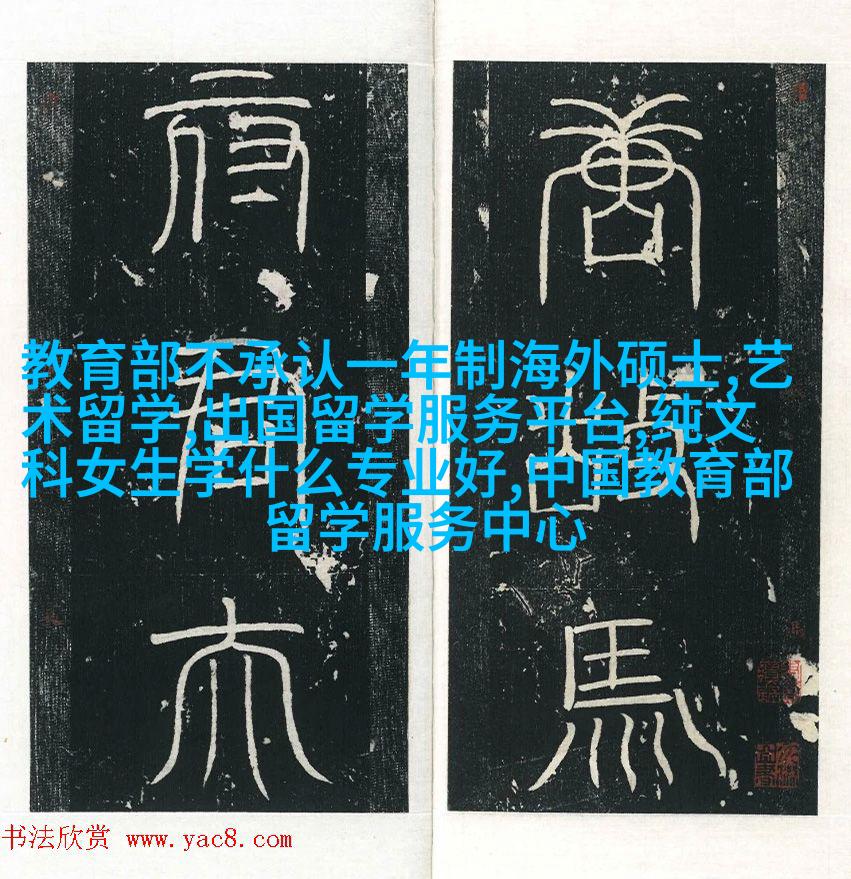 馬
教育部不承认一年制海外硕士,艺
术留学,出国留学服务平台,纯文
科女生学什么专业好,中国教育部
留学服务中心
书法欣赏 www.yac8.com